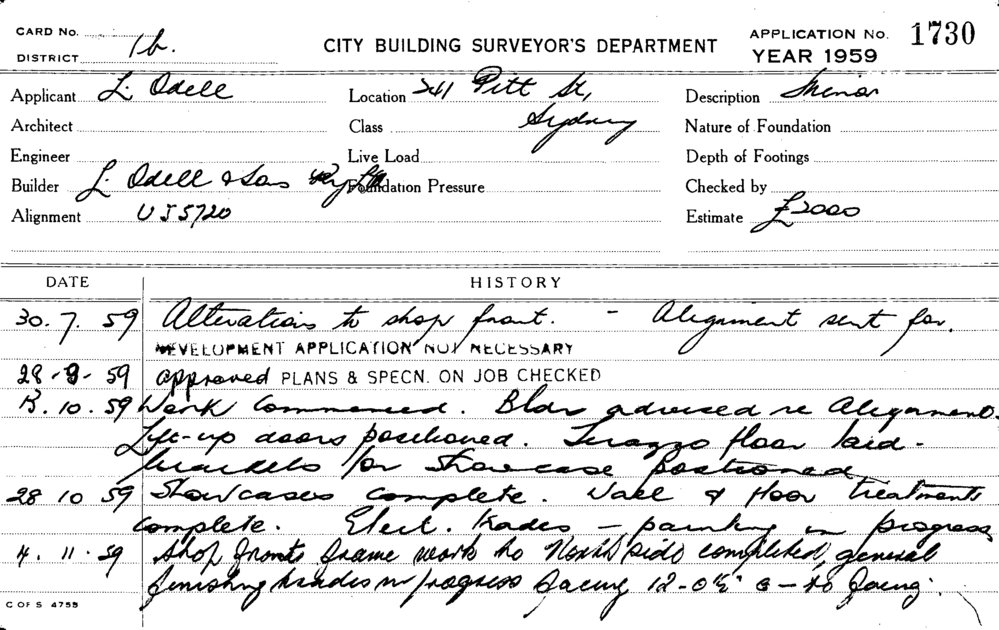 CARD No.
DISTRICT 1b.
CITY BUILDING SURVEYOR'S DEPARTMENT
APPLICATION No. 1730
YEAR 1959
Applicant L. Odell Location 241 Pitt St, Description Minor
Architect Class Sydney Nature of Foundation
Engineer Live Load Depth of Footings
Builder L. Odell & Sons Pty Ltd Foundation Pressure Checked by
Alignment U S 5720 Estimate £2000
DATE HISTORY
30.7.59 Alterations to shop front. - Alignment sent for.
DEVELOPMENT APPLICATION NOT NECESSARY
28-8-59 approved PLANS & SPECN. ON JOB CHECKED
13.10.59 Work Commenced. Bldr advised re Alignment.
Lift-up doors positioned. Terazzo floor laid-
brackets for Showcase positioned
28 10 59 Showcases complete. Wall & floor treatments
complete. Elect. trades - painting in progress
4.11.59 Shop fronts frame work to North side completed, general
finishing trades in progress facing 12-0½" to facing.
C OF S 4755